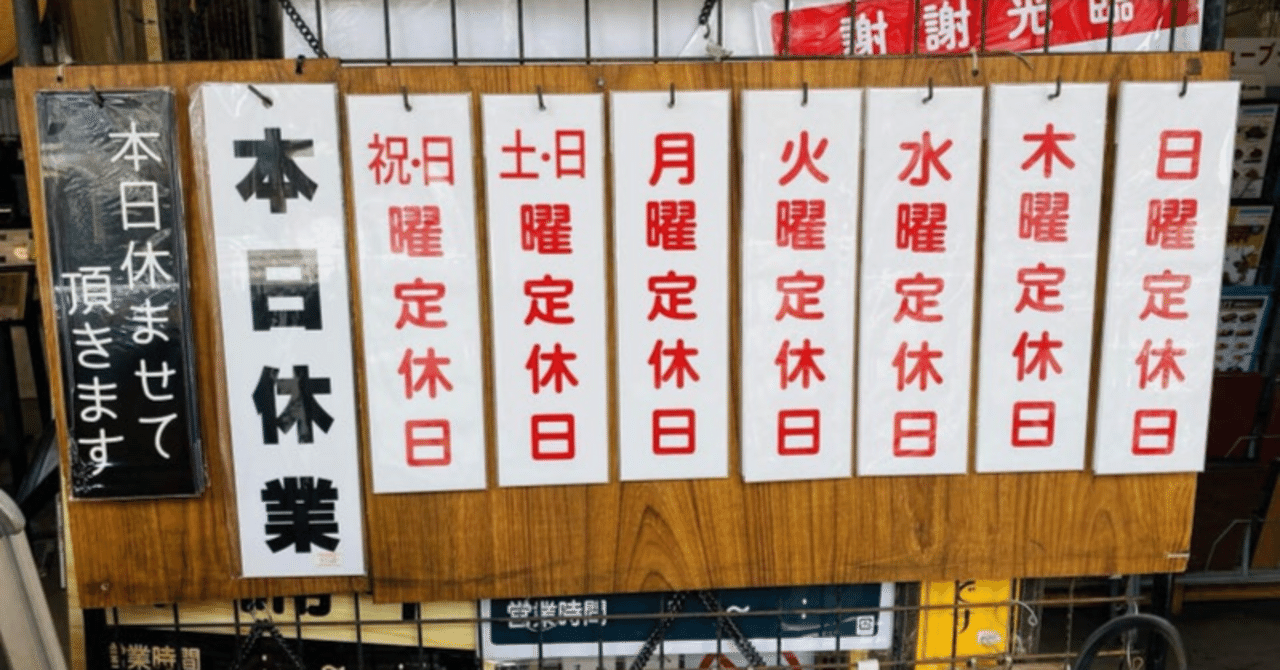 謝謝光臨
本日休ませて
頂きます
本日休業
祝・日曜定休日
土・日曜定休日
月曜定休日
火曜定休日
水曜定休日
木曜定休日
日曜定休日
営業時間 ～ :
営業時間 : ～